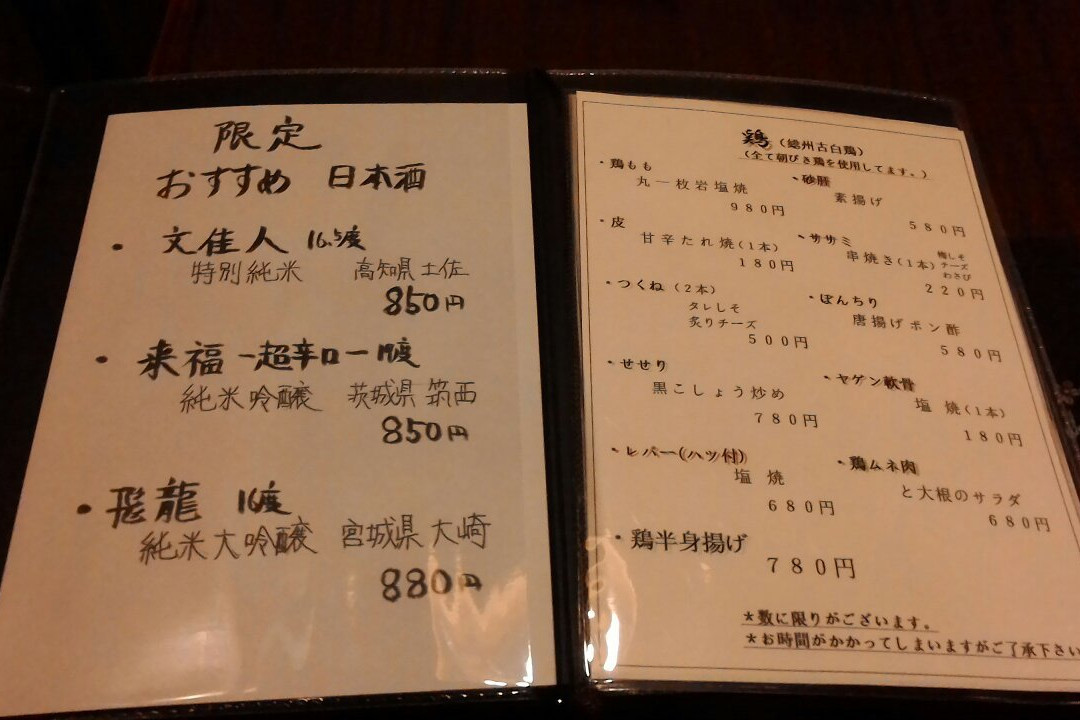 限定
おすすめ 日本酒
・文佳人 16.5度
特別純米 高知県土佐
850円
・来福 一超辛口一 17度
純米吟醸 茨城県筑西
850円
・飛龍 16度
純米大吟醸 宮城県大崎
880円
鶏(総州古白鶏)
(全て朝びき鶏を使用してます。)
・鶏もも
丸一枚岩塩焼
980円
・皮
甘辛たれ焼(1本)
180円
・つくね(2本)
タレしそ
炙りチーズ
500円
・せせり
黒こしょう炒め
780円
・レバー(ハツ付)
塩焼
680円
・鶏半身揚げ
780円
・砂肝
素揚げ
580円
・ササミ
串焼き(1本)
梅しそ
チーズ
わさび
220円
・ぼんちり
唐揚げポン酢
580円
・ヤゲン軟骨
塩焼(1本)
180円
・鶏ムネ肉
と大根のサラダ
680円
*数に限りがございます。
*お時間がかかってしまいますがご了承下さい